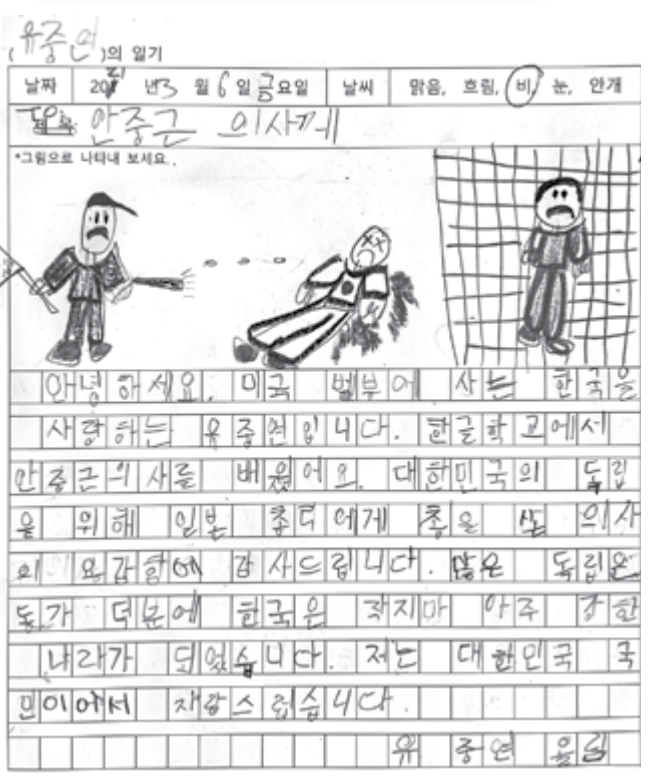 (유중연)의 일기
날짜 2021년 3월 6일 금요일 날씨 맑음, 흐림, 비, 눈, 안개
안중근 의사께
*그림으로 나타내 보세요..
안녕하세요. 미국 벌부에 사는 한국을
사랑하는 유중연입니다. 한글학교에서
안중근의사를 배웠어요. 대한민국의 독립
을 위해 일본 총독에게 총을 쏠 의사
의 요감함에 감사드립니다. 많은 독립운
동가 덕분에 한국은 작지마 아주 강한
나라가 되었습니다. 저는 대한민국 국
민이어서 자랑스럽습니다.
유중연 올림